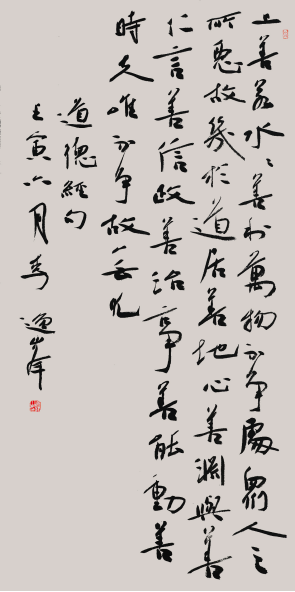 上善若水水善利萬物而不争處眾人之
所惡故幾於道居善地心善淵與善
仁言善信政善治事善能動善
時夫唯不争故無尤
道德經句
壬寅六月書 逸峰